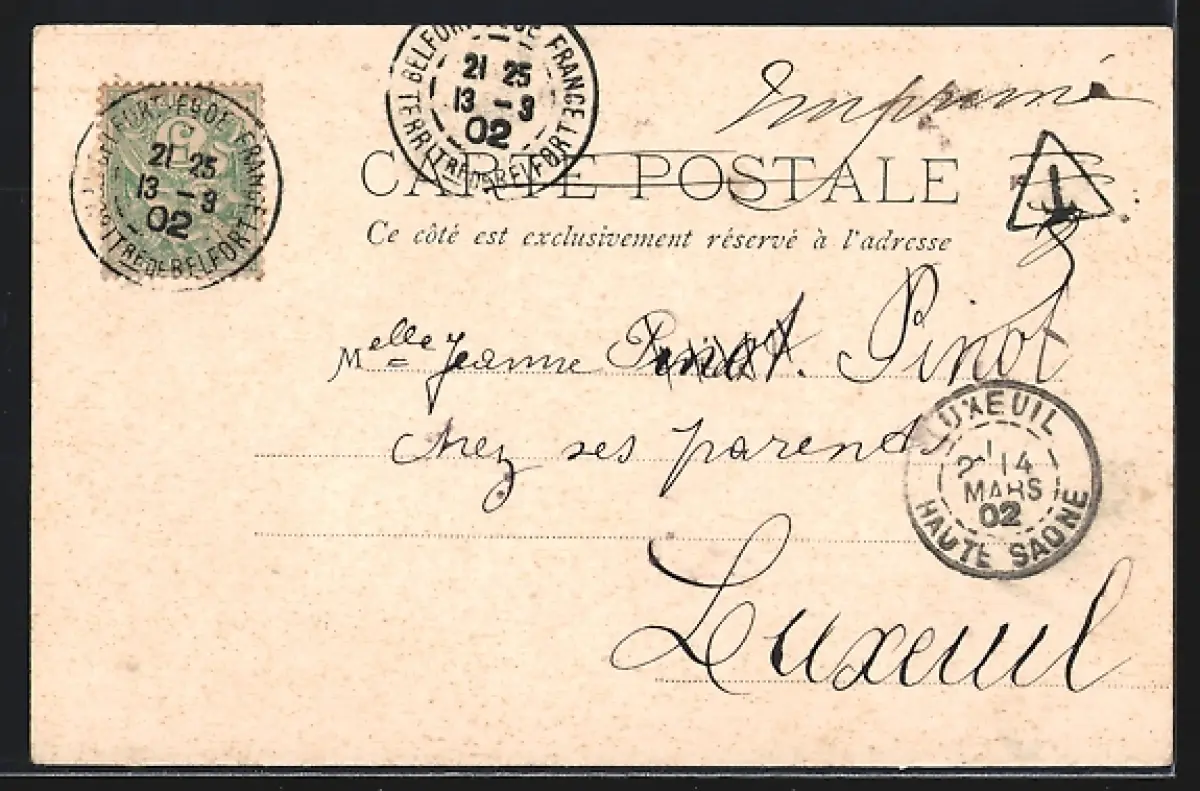 BELFORT FBG DE FRANCE
21 25
13 - 3
02
TERRITRE DE BELFORT
5
BELFORT FBG DE FRANCE
21 25
13 - 3
02
TERRITRE DE BELFORT
Imprimé
CARTE POSTALE
T
Ce côté est exclusivement réservé à l'adresse
Melle Jeanne Pinot. Pinot
chez ses parents
LUXEUIL
14
MARS
02
HAUTE SAONE
Luxeuil